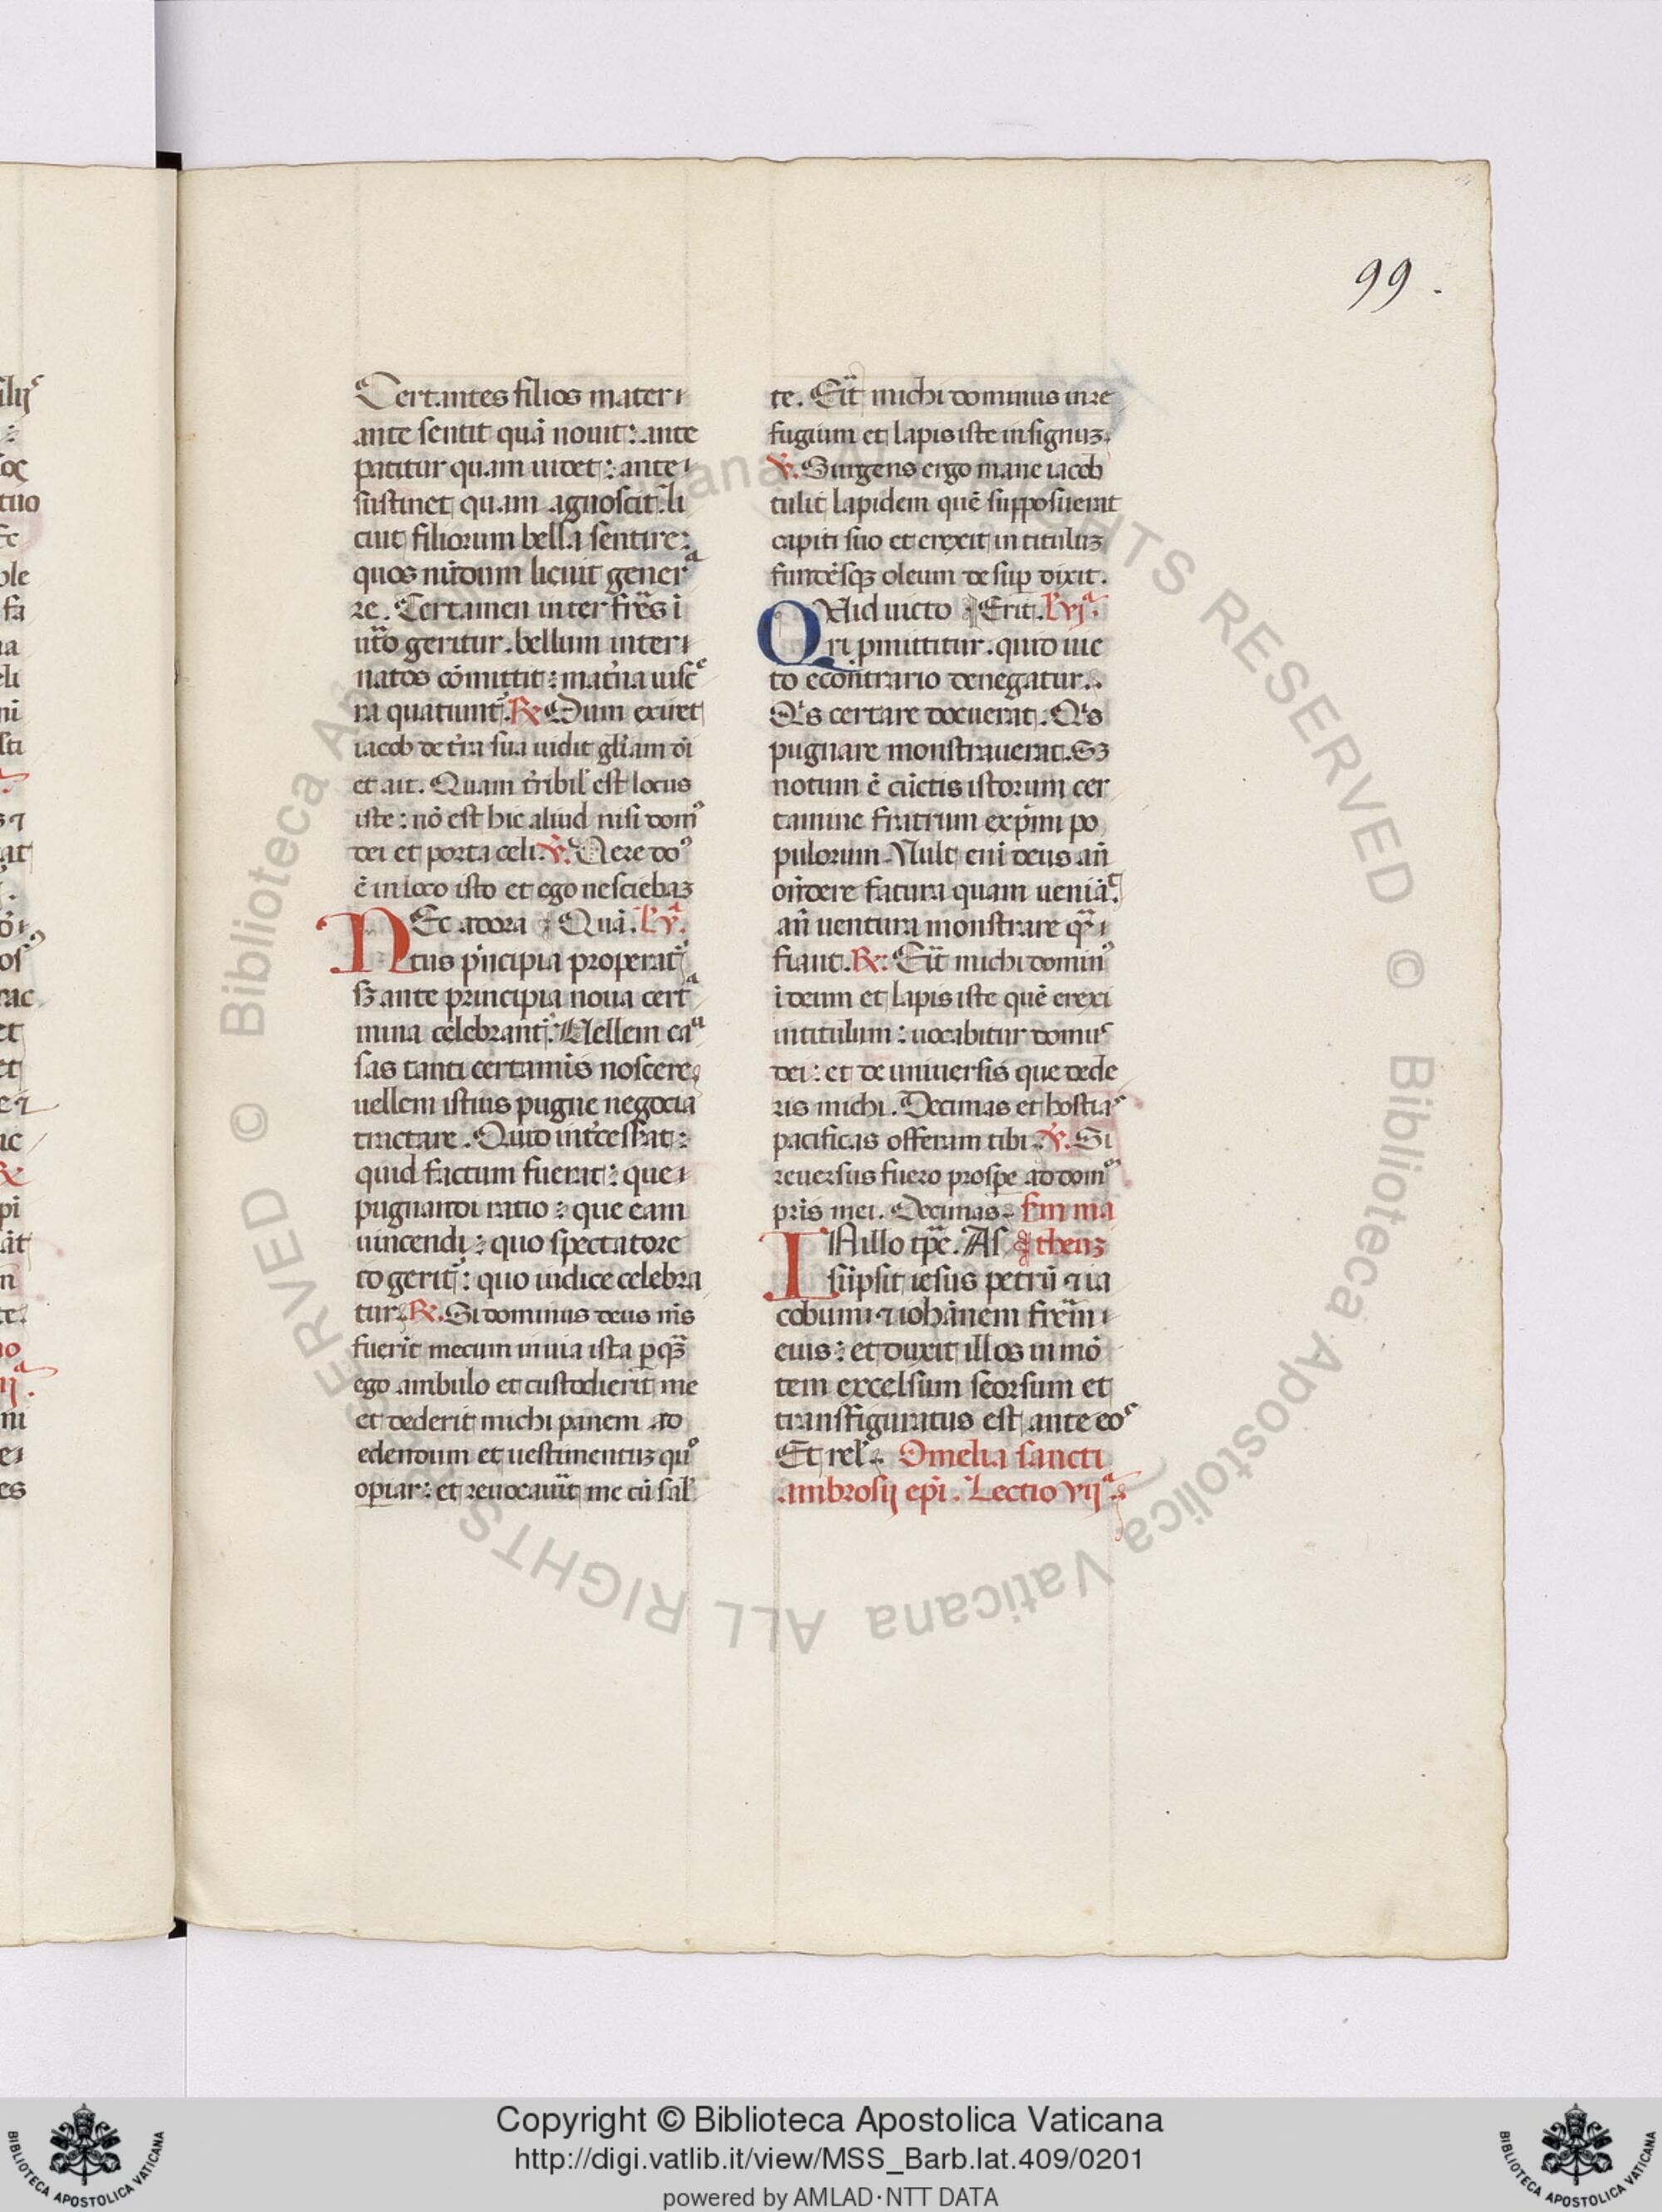 99.
Certantes filios mater
ante sentit quã nouit: ante
patitur quam uidet: ante
sustinet quam agnoscit. li
cuit filiorum bella sentire:
quos nũdum licuit genera
re. Certamen inter fr̃es ĩ
ut̃o geritur. bellum inter
natos cõmittit: mat̃na uisce
ra quatiunt̃. ℟ Dum exiret
iacob de t̃ra sua uidit gl̃iam dĩ
et ait. Quam t̃ribil̃ est locus
iste: nõ est hic aliud nisi domꝰ
dei et porta celi. ℣. Uere doꝰ
ẽ in loco isto et ego nesciebaꝫ
Ec adora Quã. l̃ vᵃ.
Nctus p̃ncipia properat̃
sꝫ ante principia noua certa
mina celebrant̃. Uellem cau
sas tanti certamĩs noscere
uellem istius pugne negocia
tractare. Quid int̃cesserat:
quid factum fuerat: que
pugnandi ratio: que eam
uincendi: quo spectatore
cogerit̃: quo iudice celebra
tur. ℟. Si dominus deus m̃s
fuerit mecum in uia ista ꝑ quã
ego ambulo et custodierit me
et dederit michi panem ad
edendum et uestimentuꝫ quo
operiar: et reuocaũit me cũ sal̃
te. Eit̃ michi dominus in re
fugium et lapis iste in signuꝫ.
℣. Surgens ergo mane iacob
tulit lapidem quẽ supposuerat
capiti suo et erexit in tituluꝫ
fundẽsqꝫ oleum desuꝑ dixit.
QUid uicto Erit. l̃ vjᵃ.
ri ꝓmittitur. quid uic
to econtrario denegatur.
Q̃s certare docuerat. Q̃s
pugnare monstrauerat. Sꝫ
notum ẽ cũctis istorum cer
tamine fratrum exp̃mi po
pulorum. Uult eni deus añ
oñdere fatura quam ueniãt
añ uentura monstrare quã
fiant. ℟: Eit̃ michi dominꝰ
ĩ deum et lapis iste quẽ erexi
in titulum: uocabitur domus
dei: et de uniuersis que dede
ris michi. Decimas et hostias
pacificas offeram tibi. ℣. Si
reuersus fuero prospe ad domũ
pr̃is mei. Decimas. Sm̃ ma
IN illo tp̃e. As theuꝫ
sũpsit iesus petrũ ⁊ ia
cobum ⁊ iohãnem fr̃em
euis: et duxit illos in mõ
tem excelsum seorsum et
transfiguratus est ante eos
Et rel̃. Omelia sancti
ambrosij ep̃i. Lectio vijᵃ.
© Biblioteca Apostolica Vaticana ALL RIGHTS RESERVED
© Biblioteca Apostolica Vaticana ALL RIGHTS RESERVED
BIBLIOTECA APOSTOLICA VATICANA
Copyright © Biblioteca Apostolica Vaticana
http://digi.vatlib.it/view/MSS_Barb.lat.409/0201
powered by AMLAD·NTT DATA
BIBLIOTECA APOSTOLICA VATICANA